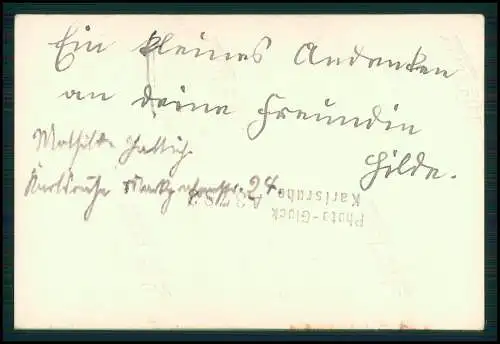 Ein kleines Andenken
an deine Freundin
Hilde.
Mathilde
Karlsruhe 24
Photo-Glock
Karlsruhe